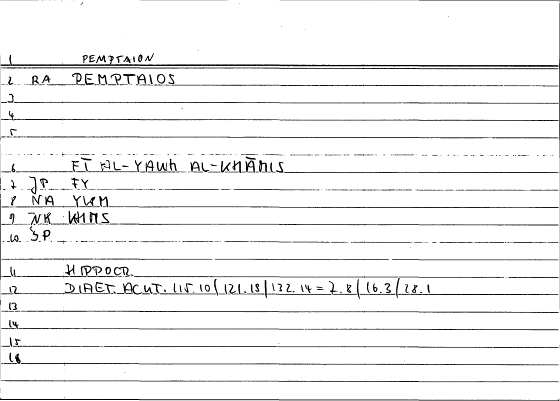 1 PEMPTAION
2 RA PEMPTAIOS
3
4
5
6 FĪ AL-YAWM AL-KHĀMIS
7 JP FY
8 NA YWM
9 NK KHMS
10 SP
11 HIPPOCR.
12 DIAET. ACUT. 115.10 / 121.18 / 132.14 = 7.8 / 16.3 / 28.1
13
14
15
16